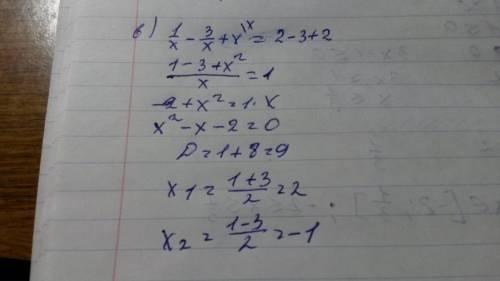 в) 1/x - 3/x + x\x = 2-3+2
(1-3+x²)/x = 1
-2+x²=1·x
x²-x-2=0
D=1+8=9
x1 = (1+3)/2 = 2
x2 = (1-3)/2 = -1